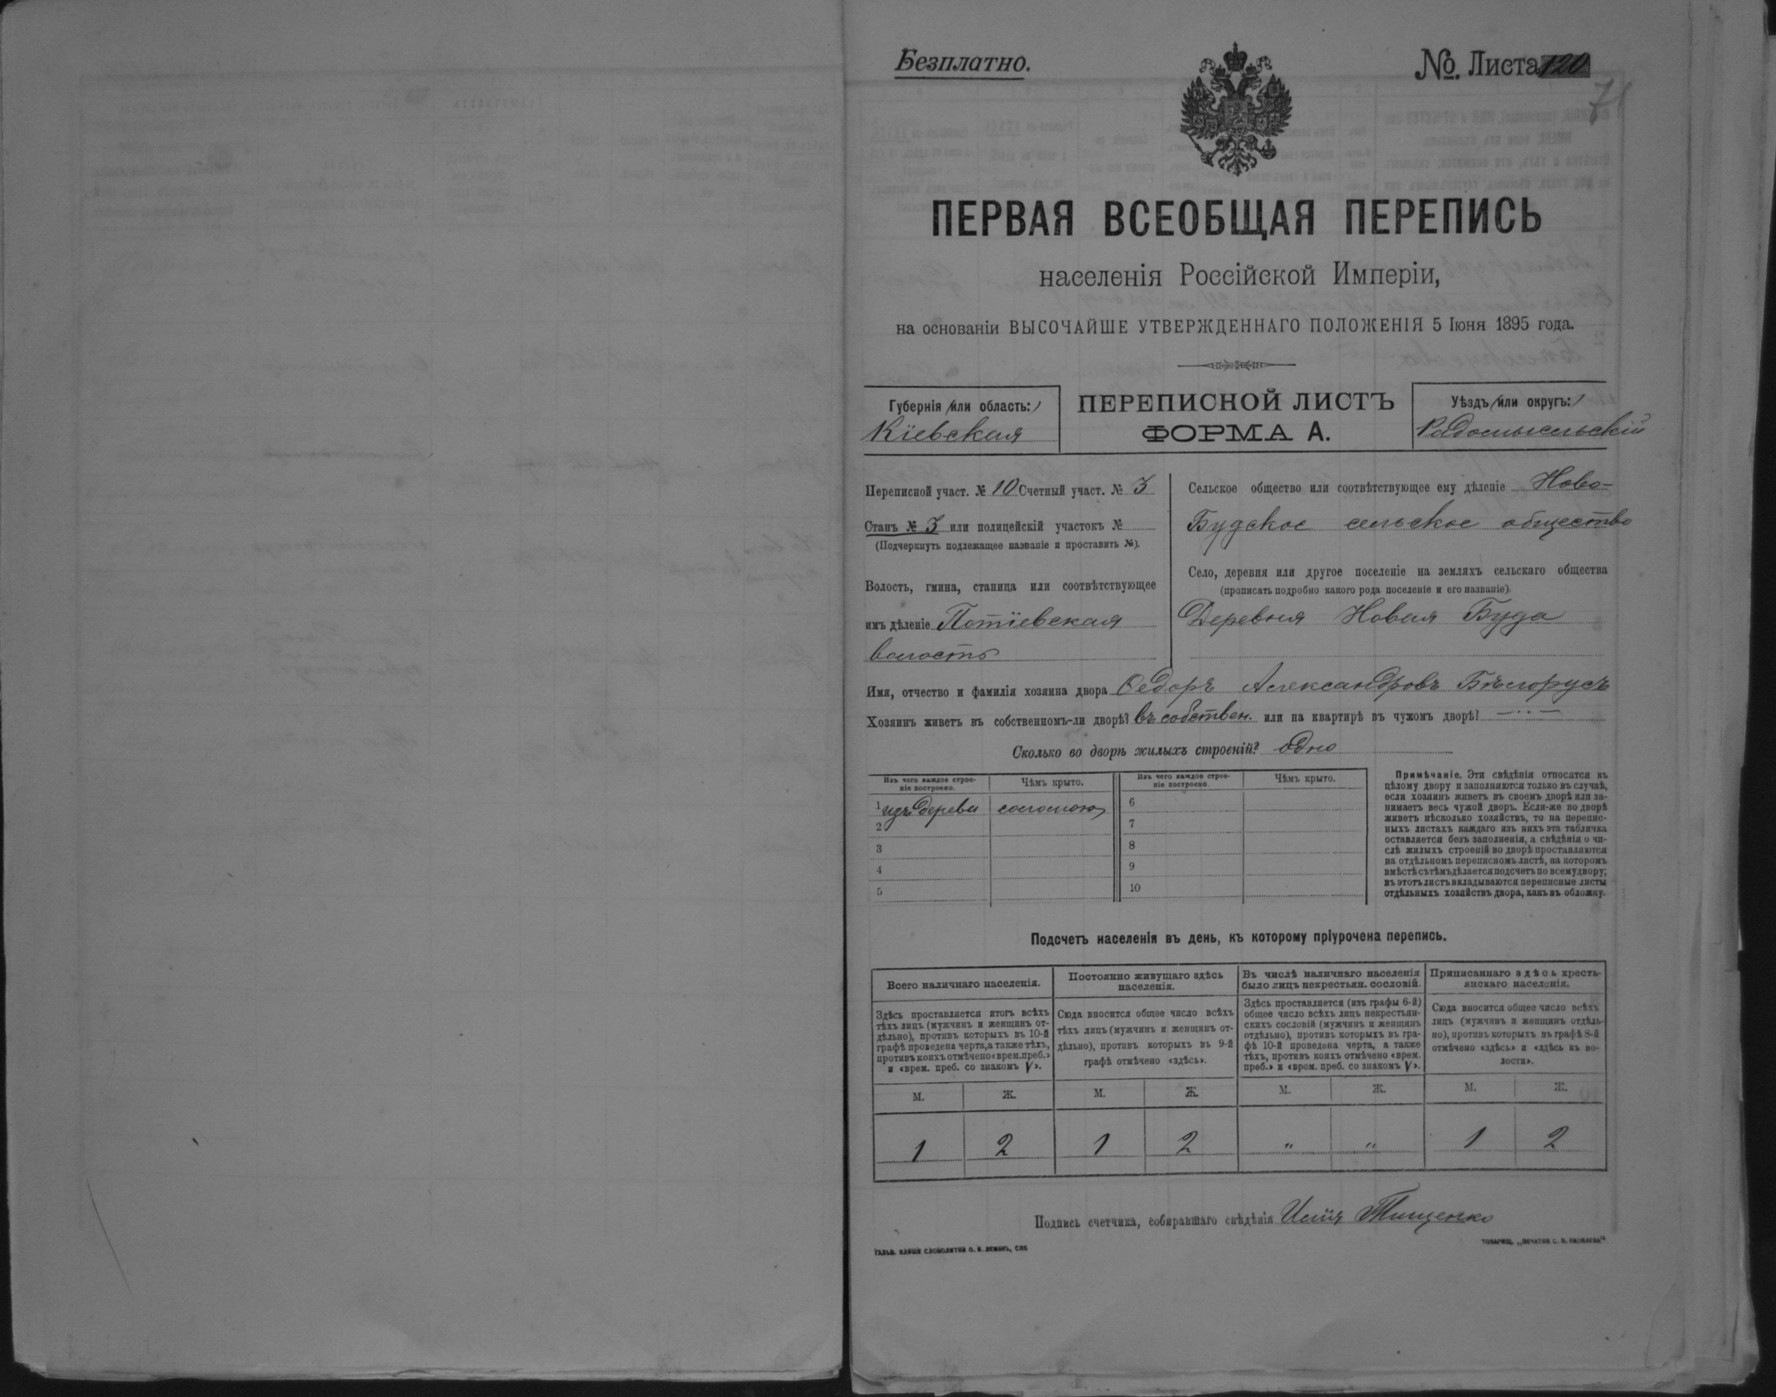 Безплатно.
№. Листа 120
71
ПЕРВАЯ ВСЕОБЩАЯ ПЕРЕПИСЬ
населенія Россійской Имперіи,
на основаніи ВЫСОЧАЙШЕ УТВЕРЖДЕННАГО ПОЛОЖЕНІЯ 5 Іюня 1895 года.
Губернія (или область:)
Кіевская
ПЕРЕПИСНОЙ ЛИСТЪ
ФОРМА А.
Уѣздъ (или округъ:)
Радомысльскій
Переписной участ. № 10 Счетный участ. № 3
Станъ № 3 или полицейскій участокъ №
(Подчеркнуть подлежащее названіе и проставить №).
Волость, гмина, станица или соотвѣтствующее
имъ дѣленіе Потіевская
волость
Сельское общество или соотвѣтствующее ему дѣленіе Ново-
Будское сельское общество
Село, деревня или другое поселеніе на земляхъ сельскаго общества
(прописать подробно какого рода поселеніе и его названіе).
Деревня Новая Буда
Имя, отчество и фамилія хозяина двора Ѳедоръ Александровъ Бѣлорусъ
Хозяинъ живетъ въ собственномъ-ли дворѣ? въ собствен. или на квартирѣ въ чужомъ дворѣ?
Сколько во дворѣ жилыхъ строеній? одно
Изъ чего каждое строе-
ніе построено.
Чѣмъ крыто.
1 изъ дерева соломою
2
3
4
5
Изъ чего каждое строе-
ніе построено.
Чѣмъ крыто.
6
7
8
9
10
Примѣчаніе. Эти свѣдѣнія относятся къ
цѣлому двору и заполняются только въ случаѣ,
если хозяинъ живетъ въ своемъ дворѣ или за-
нимаетъ весь чужой дворъ. Если-же во дворѣ
живетъ нѣсколько хозяйствъ, то на перепис-
ныхъ листахъ каждаго изъ нихъ эта табличка
оставляется безъ заполненія, а свѣдѣнія о чи-
слѣ жилыхъ строеній во дворѣ проставляются
на отдѣльномъ переписномъ листѣ, на которомъ
вмѣстѣ съ тѣмъ дѣлается подсчетъ по всему двору;
въ этотъ листъ вкладываются переписные листы
отдѣльныхъ хозяйствъ двора, какъ въ обложку.
Подсчетъ населенія въ день, къ которому пріурочена перепись.
Всего наличнаго населенія.
Здѣсь проставляется итогъ всѣхъ
тѣхъ лицъ (мужчинъ и женщинъ от-
дѣльно), противъ которыхъ въ 10-й
графѣ проведена черта, а также тѣхъ,
противъ коихъ отмѣчено «врем. преб.»
и «врем. преб. со знакомъ V».
М. Ж.
1 2
Постоянно живущаго здѣсь
населенія.
Сюда вносится общее число всѣхъ
тѣхъ лицъ (мужчинъ и женщинъ от-
дѣльно), противъ которыхъ въ 9-й
графѣ отмѣчено «здѣсь».
М. Ж.
1 2
Въ числѣ наличнаго населенія
было лицъ некрестьян. сословій.
Здѣсь проставляется (изъ графы 6-й)
общее число всѣхъ лицъ некрестьян-
скихъ сословій (мужчинъ и женщинъ
отдѣльно), противъ которыхъ въ гра-
фѣ 10-й проведена черта, а также
тѣхъ, противъ коихъ отмѣчено «врем.
преб.» и «врем. преб. со знакомъ V».
М. Ж.
" "
Приписаннаго здѣсь кресть-
янскаго населенія.
Сюда вносится общее число всѣхъ
лицъ (мужчинъ и женщинъ отдѣль-
но), противъ которыхъ въ графѣ 8-й
отмѣчено «здѣсь» и «здѣсь въ во-
лости».
М. Ж.
1 2
Подпись счетчика, собиравшаго свѣдѣнія Илія Тищенко